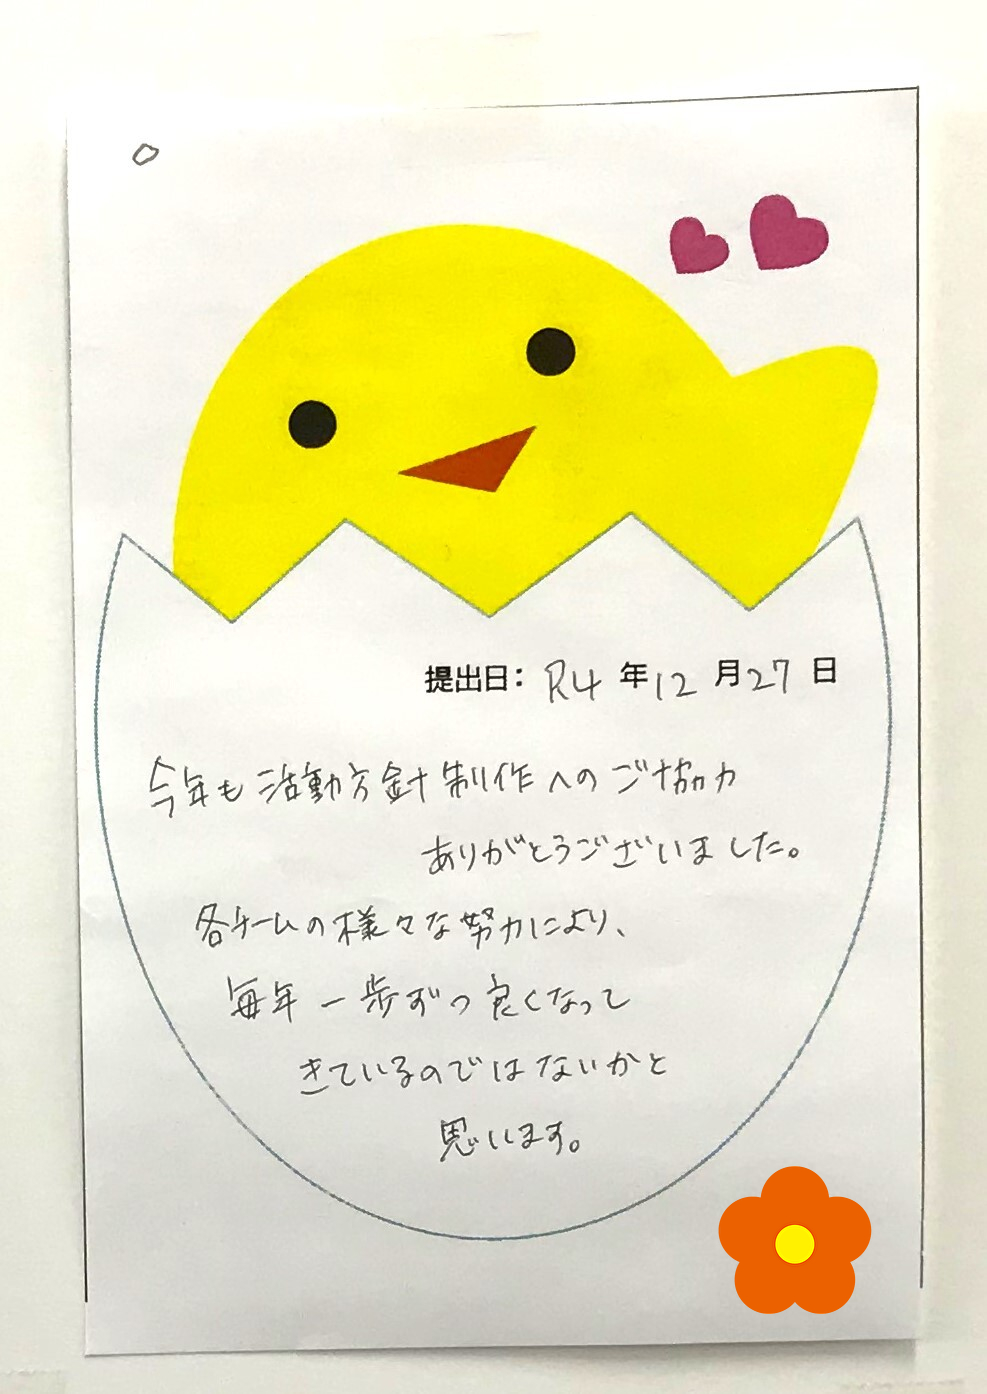 提出日: R4 年 12 月 27 日
今年も活動方針制作へのご協力
ありがとうございました。
各チームの様々な努力により、
毎年一歩ずつ良くなって
きているのではないかと
思います。